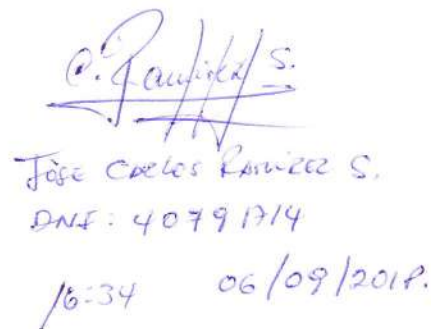 C. Ramirez S.
José Carlos Ramírez S.
DNI: 40791714
16:34 06/09/2018.